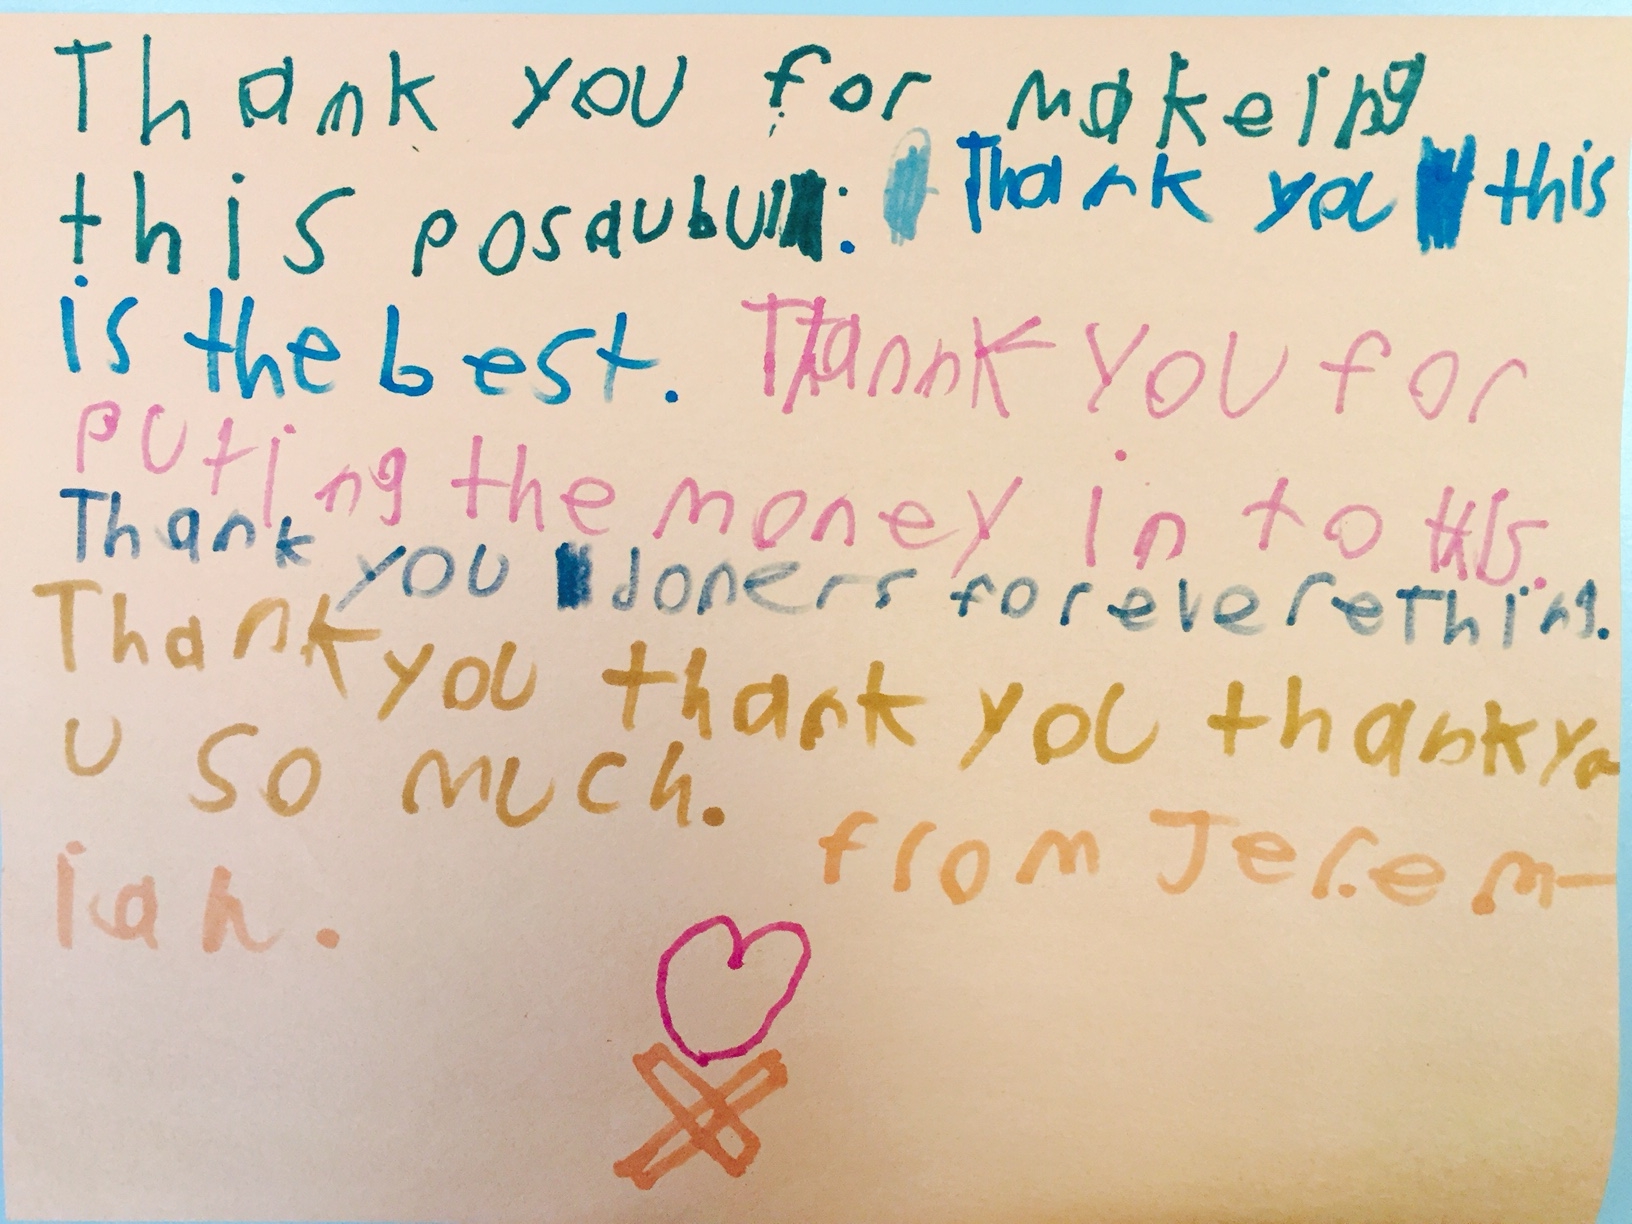 Thank you for makeing
this posaubul: Thank you this
is the best. Thannk you for
puting the money in to this.
Thank you doners for everething.
Thank you thank you thank yo
u so much.
from Jerem-
iah.